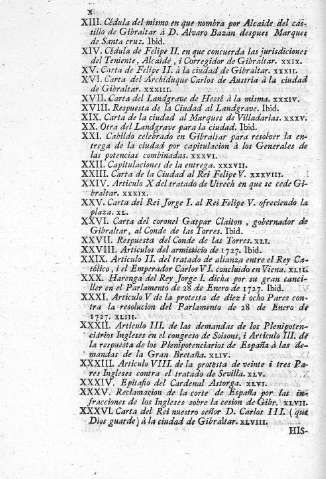 X
XIII. Cédula del mismo en que nombra por Alcaide del cas-
tillo de Gibraltar à D. Alvaro Bazan despues Marques
de Santa cruz. Ibid.
XIV. Cédula de Felipe II. en que concuerda las jurisdiciones
del Teniente, Alcaide, i Corregidor de Gibraltar. XXIX.
XV. Carta de Felipe II. à la ciudad de Gibraltar. XXXII.
XVI. Carta del Archiduque Carlos de Austria à la ciudad
de Gibraltar. XXXIII.
XVII. Carta del Landgrave de Hessè à la misma. XXXIV.
XVIII. Respuesta de la Ciudad al Landgrave. Ibid.
XIX. Carta de la ciudad al Marques de Villadarias. XXXV.
XX. Otra del Landgrave para la ciudad. Ibid.
XXI. Cabildo celebrado en Gibraltar para resolver la en-
trega de la ciudad por capitulacion à los Generales de
las potencias combinadas. XXXVI.
XXII. Capitulaciones de la entrega. XXXVII.
XXIII. Carta de la Ciudad al Rei Felipe V. XXXVIII.
XXIV. Articulo X del tratado de Utrech en que se cede Gi-
braltar. XXXIX.
XXV. Carta del Rei Jorge I. al Rei Felipe V. ofreciendo la
plaza. XL.
XXVI. Carta del coronel Gaspar Claiton, gobernador de
Gibraltar, al Conde de las Torres. Ibid.
XXVII. Respuesta del Conde de las Torres. XLI.
XXVIII. Articulos del armisticio de 1727. Ibid.
XXIX. Articulo II. del tratado de alianza entre el Rey Ca-
tólico, i el Emperador Carlos VI. concluido en Viena. XLII.
XXX. Harenga del Rey Jorge I. dicha por su gran canci-
ller en el Parlamento de 28 de Enero de 1727. Ibid.
XXXI. Articulo V de la protesta de diez i ocho Pares contra
la resolucion del Parlamento de 28 de Enero de
1727. XLIII.
XXXII. Articulo III. de las demandas de los Plenipoten-
ciarios Ingleses en el congreso de Soisons, i Articulo III. de
la respuesta de los Plenipotenciarios de España à las de-
mandas de la Gran Bretaña. XLIV.
XXXIII. Articulo VIII. de la protesta de veinte i tres Pa-
res Ingleses contra el tratado de Sevilla. XLV.
XXXIV. Epitafio del Cardenal Astorga. XLVI.
XXXV. Reclamacion de la corte de España por las in-
fracciones de los Ingleses sobre la cesion de Gibr. XLVII.
XXXVI. Carta del Rei nuestro señor D. Carlos III. (que
Dios guarde) à la ciudad de Gibraltar. XLVIII.
HIS-